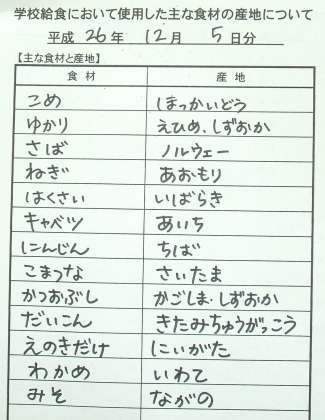 学校給食において使用した主な食材の産地について
平成 26 年 12 月 5 日分
【主な食材と産地】
食材 産地
こめ ほっかいどう
ゆかり えひめ、しずおか
さば ノルウェー
ねぎ あおもり
はくさい いばらき
キャベツ あいち
にんじん ちば
こまつな さいたま
かつおぶし かごしま、しずおか
だいこん きたみちゅうがっこう
えのきだけ にいがた
わかめ いわて
みそ ながの